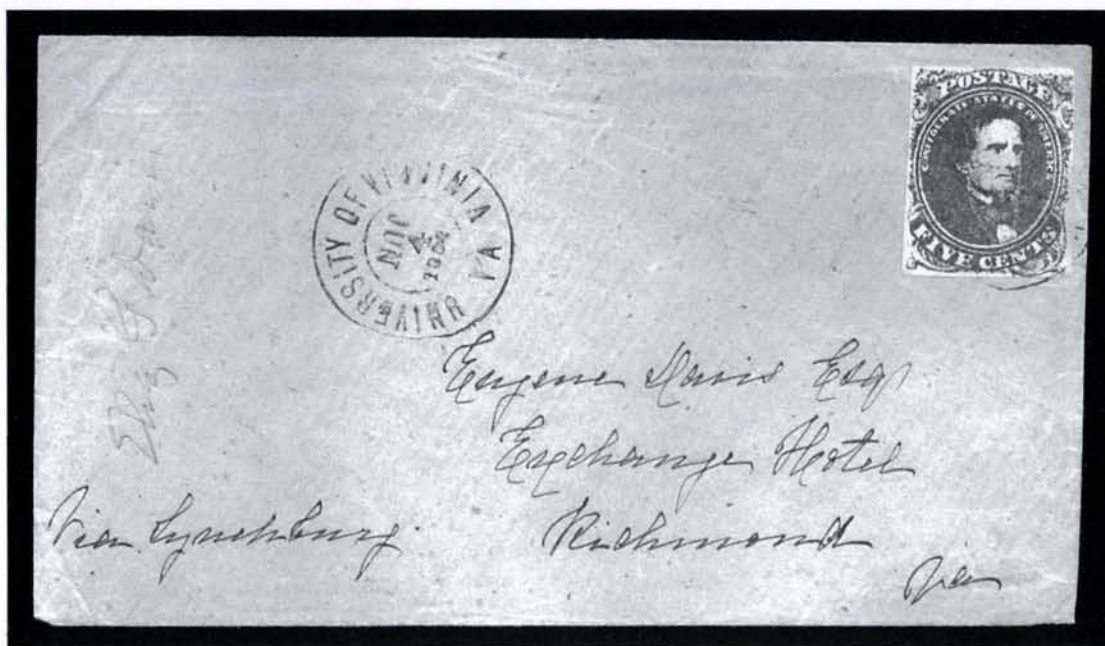 POSTAGE
CONFEDERATE STATES OF AMERICA
FIVE CENTS
UNIVERSITY OF VIRGINIA VA
JUN
4
Eugene Davis Esq
Exchange Hotel
Richmond
Va
Via Lynchburg.